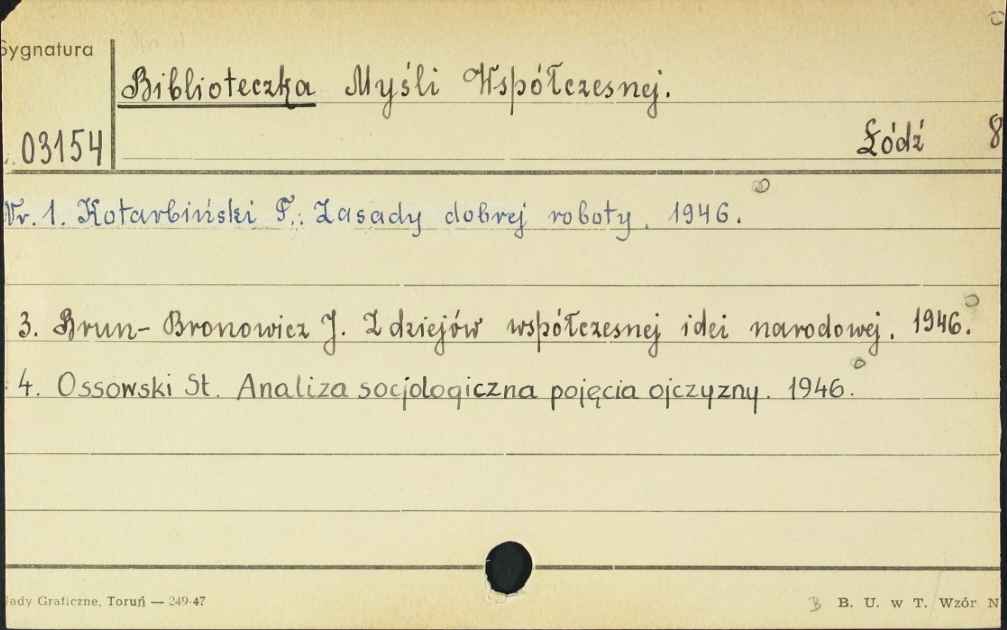 Sygnatura
Biblioteczka Myśli Współczesnej.
03154
Łódź 8
Nr. 1. Kotarbiński T.: Zasady dobrej roboty. 1946.
3. Brun-Bronowicz J. Z dziejów współczesnej idei narodowej. 1946.
4. Ossowski St. Analiza socjologiczna pojęcia ojczyzny. 1946.
Graficzne, Toruń — 249-47
B. U. w T. Wzór N